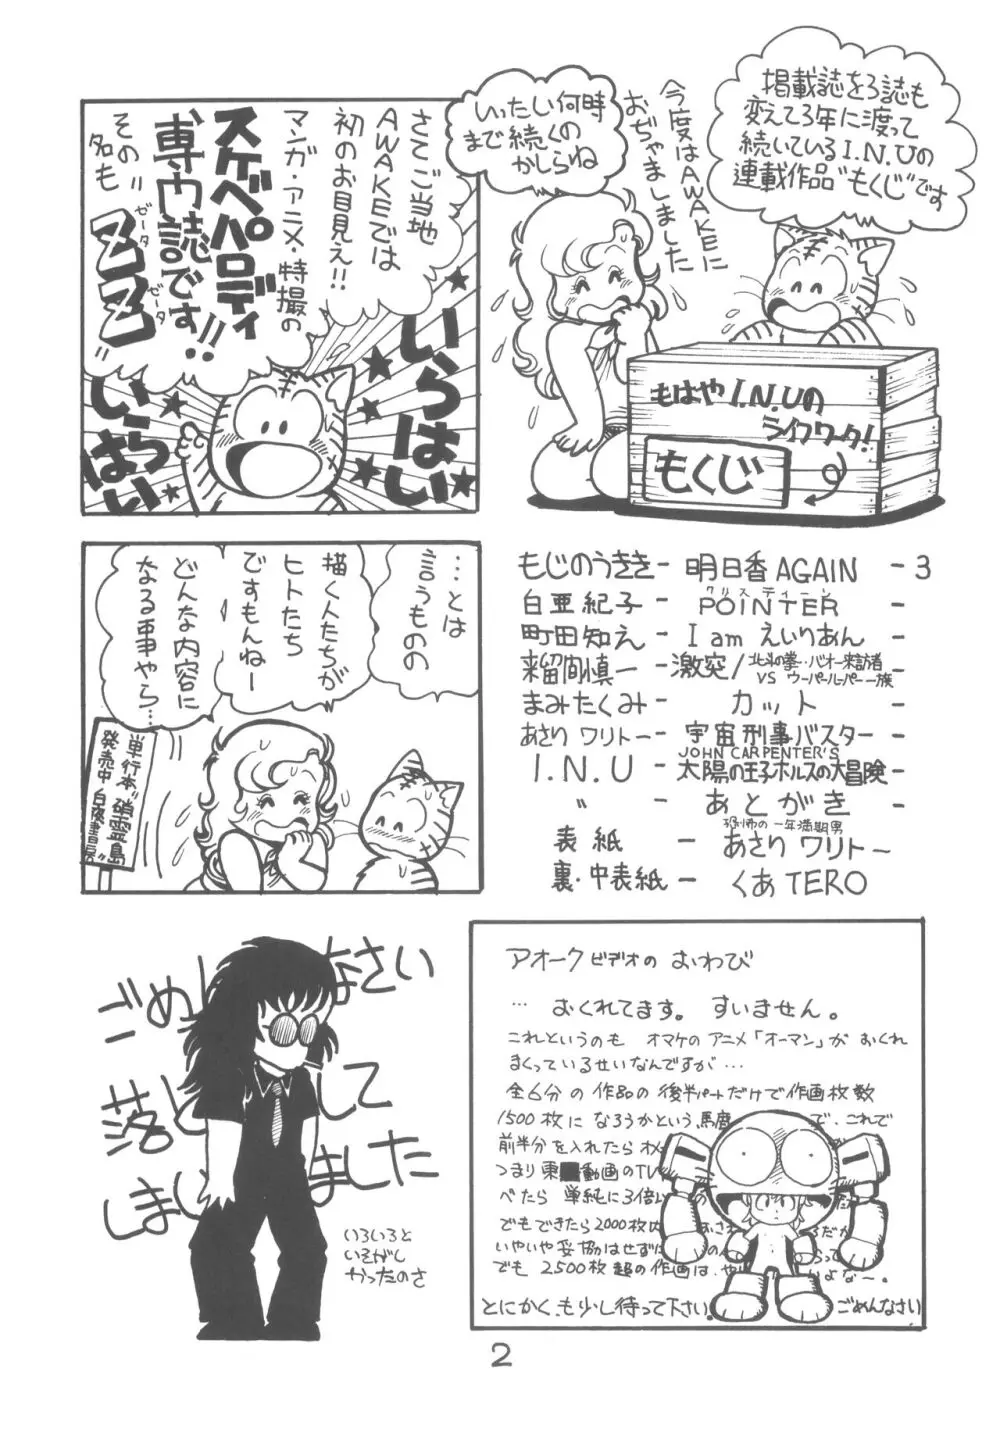 掲載誌を3誌も
変えて3年に渡って
続いているI.N.Uの
連載作品"もくじ"です
今度はAWAKEに
おぢゃましました
いったい何時
まで続くの
かしらね
もはやI.N.Uの
ライフワーク!
もくじ
さてご当地
AWAKEでは
初のお目見え!!
マンガ・アニメ・特撮の
スケベパロディ
専門誌です!!
その名も
"ZZ"
ゼータ
ゼータ
いらはい
いらはい
…とは
言うものの
描く人たちが
ヒトたち
ですもんねー
どんな内容に
なる事やら…
単行本"硝霊島"
発売中 白夜書房
もじのうききー 明日香AGAIN ー3
クリスティーン
白亜紀子ー POINTER ー
町田知えー I am えいりあん ー
来留間慎一ー 激突/北斗の拳・バオー来訪者 VS ウーパールーパー一族 ー
まみたくみー カット ー
あさりワリトー 宇宙刑事バスター ー
JOHN CARPENTER'S
I.N.U ー 太陽の王子ホルスの大冒険ー
〃 ー あとがき ー
恐怖の一年満期男
表紙 ー あさりワリトー
裏・中表紙 ー くあTERO
ごめんなさい
落として
しまいました
いろいろと
いそがし
かったのさ
アオークビデオの おわび
… おくれてます。 すいません。
これというのも オマケのアニメ「オーマン」が おくれ
まくっているせいなんですが…
全6分の 作品の 後半パートだけで作画枚数
1500枚に なろうかという、馬鹿 で、これで
前半分を入れたら
つまり東 動画のTV
べたら 単純に3倍
でもできたら2000枚内 おさ
いやいや妥協はせずに
でも 2500枚超の作画は、や よな〜。
とにかく、も少し待って下さい。 ごめんなさい
2